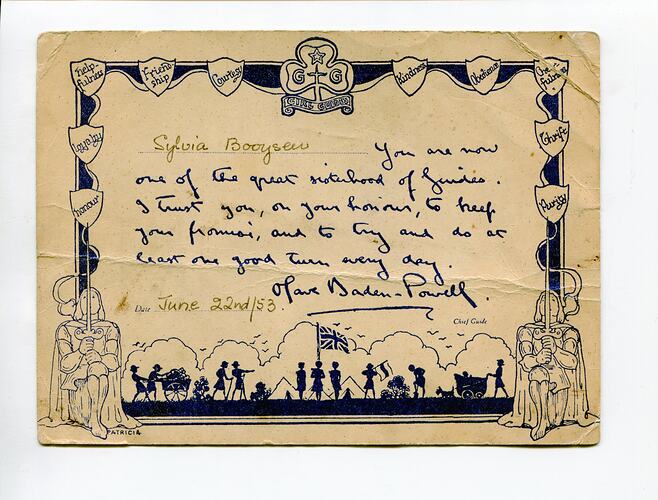 help-
fulness
Friend-
ship
Courtesy
G G
GIRL GUIDES
Kindness
Obedience
Che
fuln
Loyalty
Thrift
honour
Purity
Sylvia Booysen You are now
one of the great sisterhood of Guides.
I trust you, on your honour, to keep
your promise, and to try and do at
least one good turn every day.
Olave Baden-Powell.
Date June 22nd/53.
Chief Guide
PATRICIA